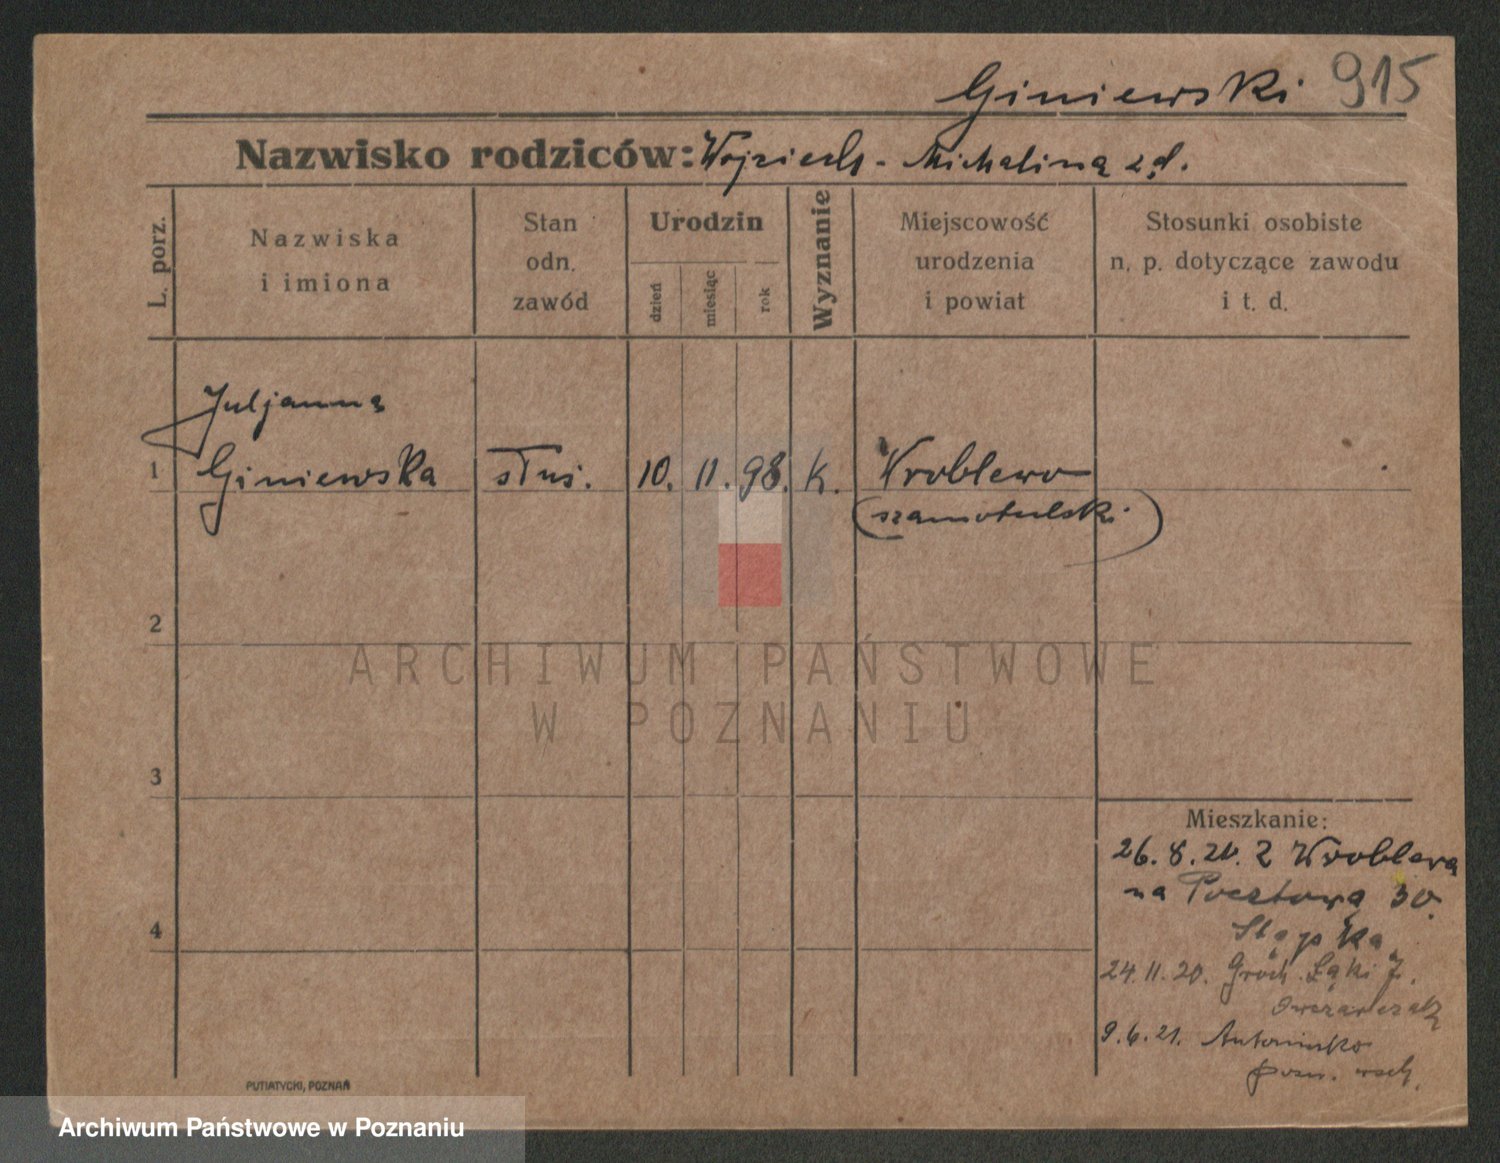 Giniewski 915
Nazwisko rodziców: Wojciech - Michalina z d.
L. porz.
Nazwiska
i imiona
Stan
odn.
zawód
Urodzin
dzień
miesiąc
rok
Wyznanie
Miejscowość
urodzenia
i powiat
Stosunki osobiste
n. p. dotyczące zawodu
i t. d.
Juljanna
1 Giniewska służ. 10. 11. 98. K. Wroblewo
(szamotulski)
2
ARCHIWUM PAŃSTWOWE
W POZNANIU
3
Mieszkanie:
26.8.20. z Wroblewa
na Pocztową 30.
4
24.11.20. Groch. Łąki 7.
9.6.21. Antoninko
pozn. wsch.
PUTIATYCKI, POZNAŃ
Archiwum Państwowe w Poznaniu